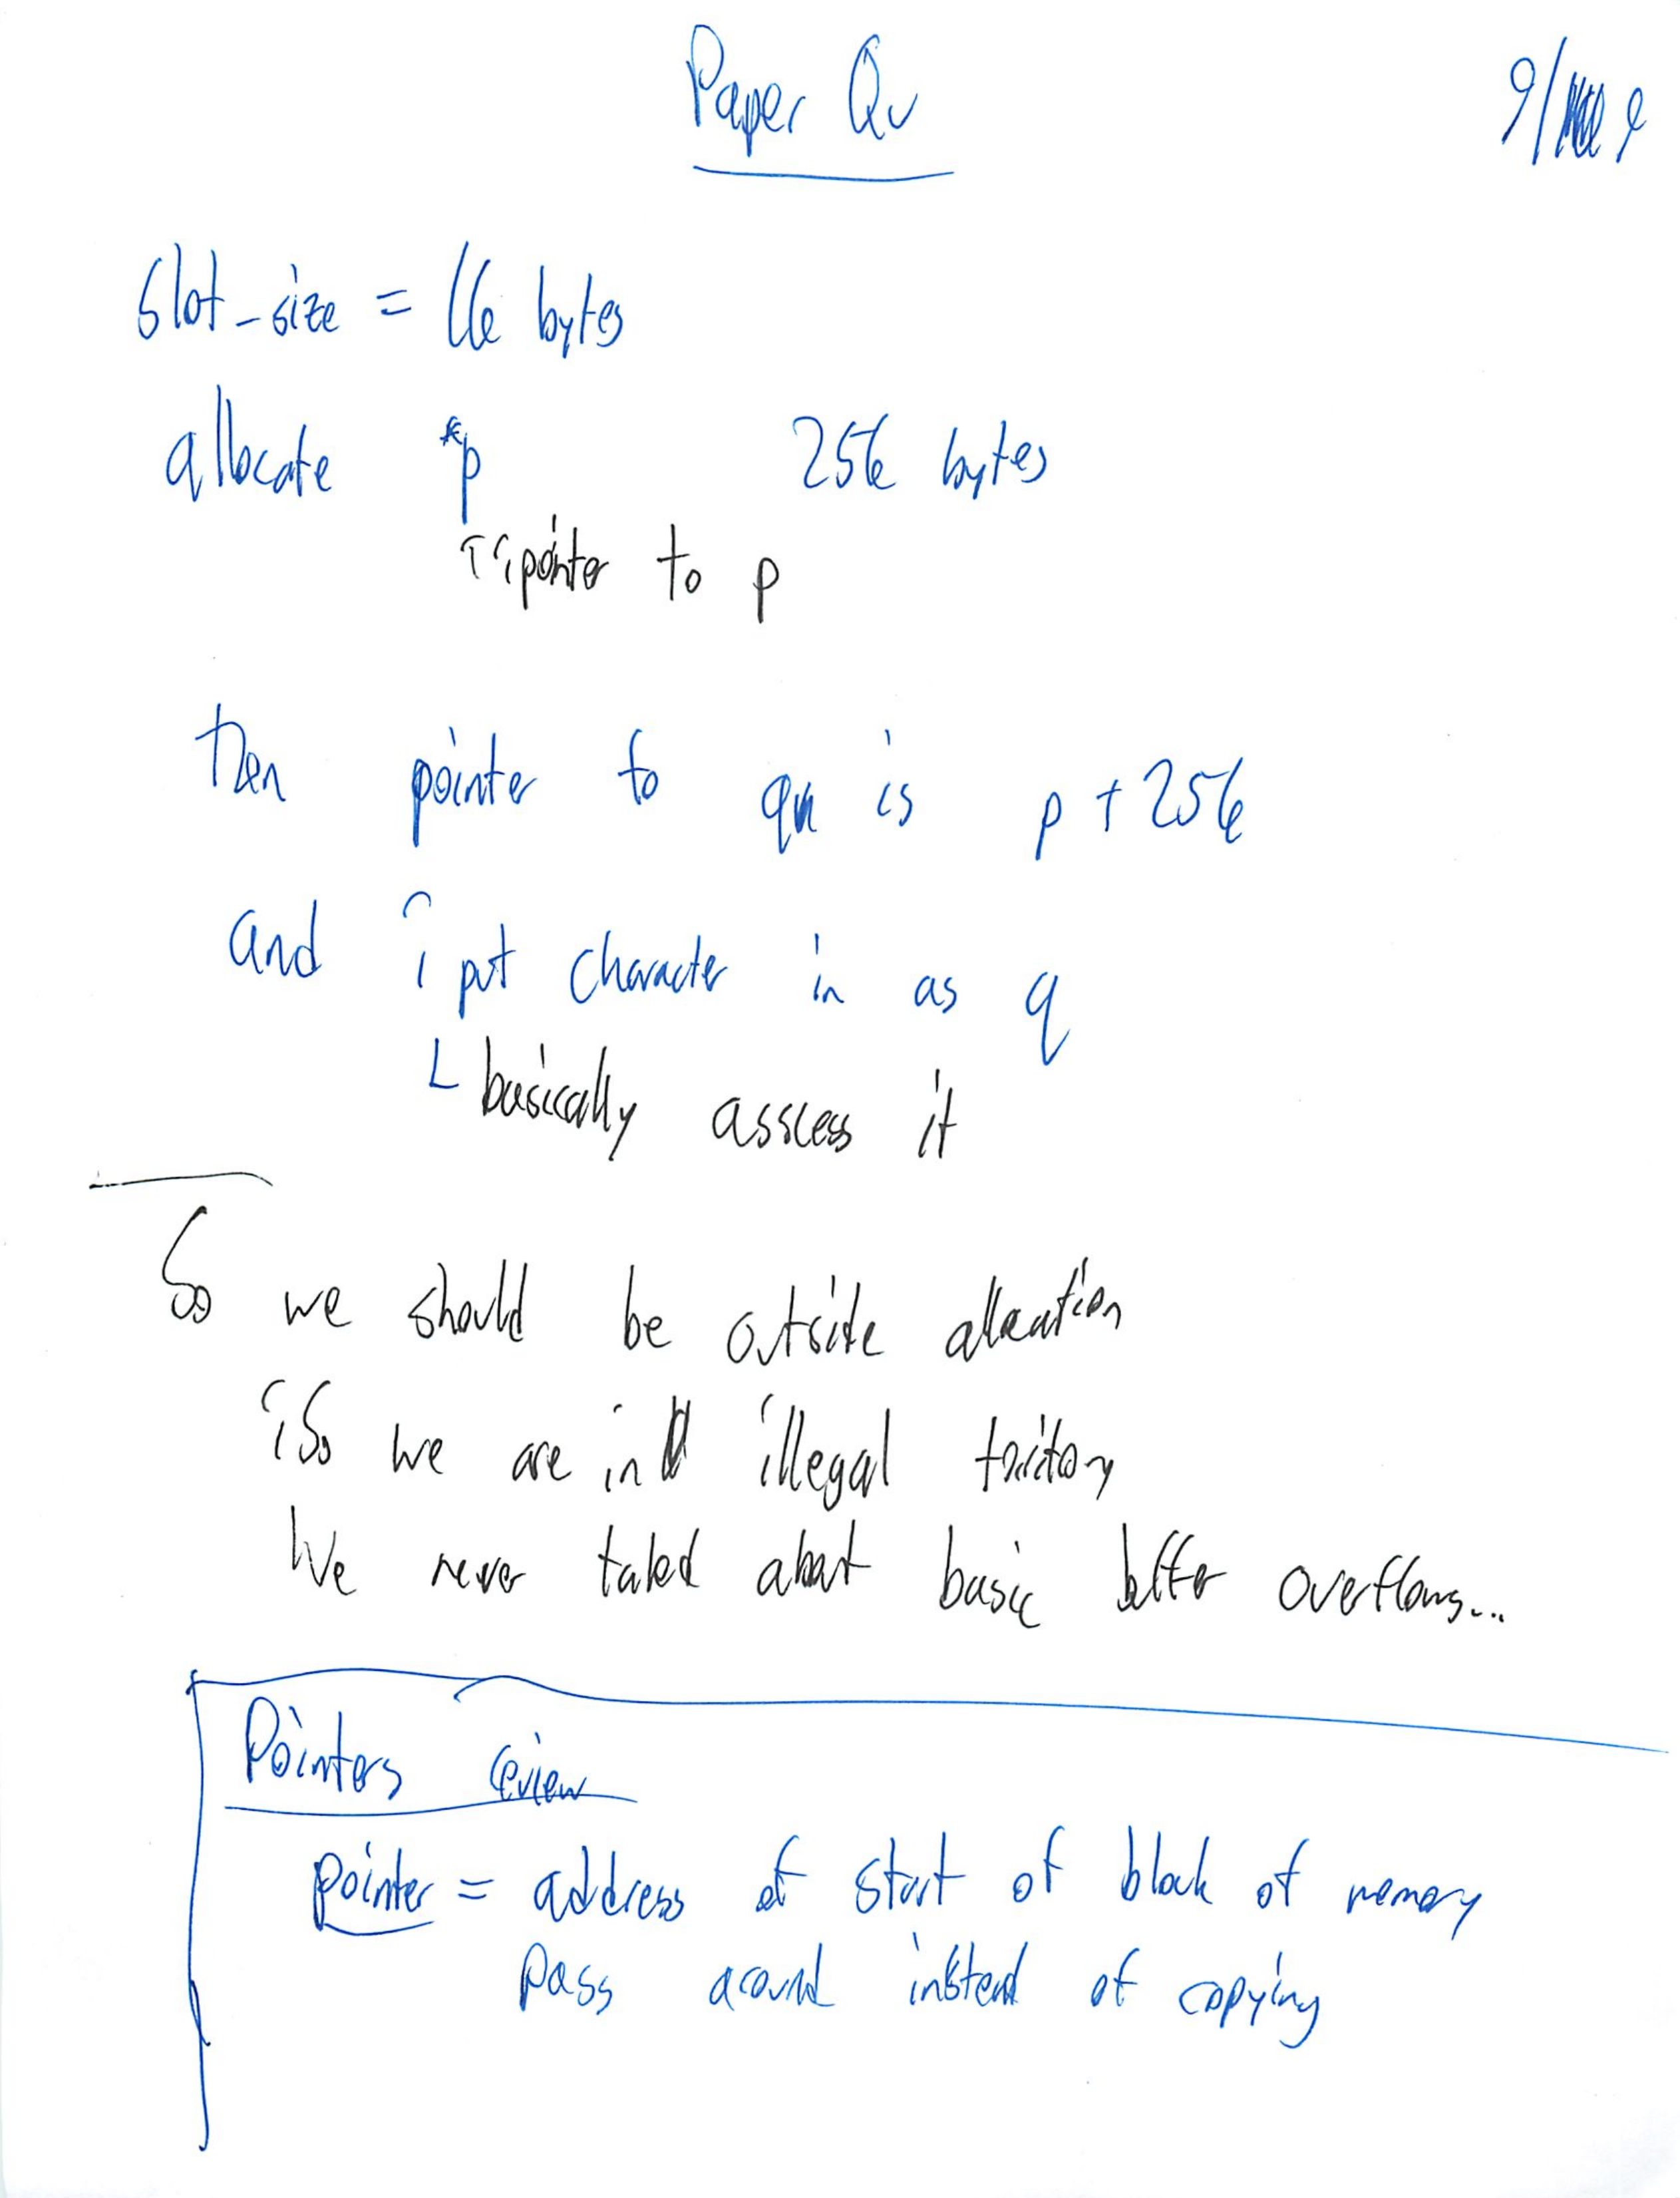 Paper Qu
9/9
slot-size = 16 bytes
allocate *p 256 bytes
pointer to p
then pointer to qu is p + 256
and i put character in as q
basically asscess it
So we should be outside allocation
So we are in illegal
We never talked about basic buffer overflows...
Pointers review
pointer = address of start of block of memory
pass around instead of copying